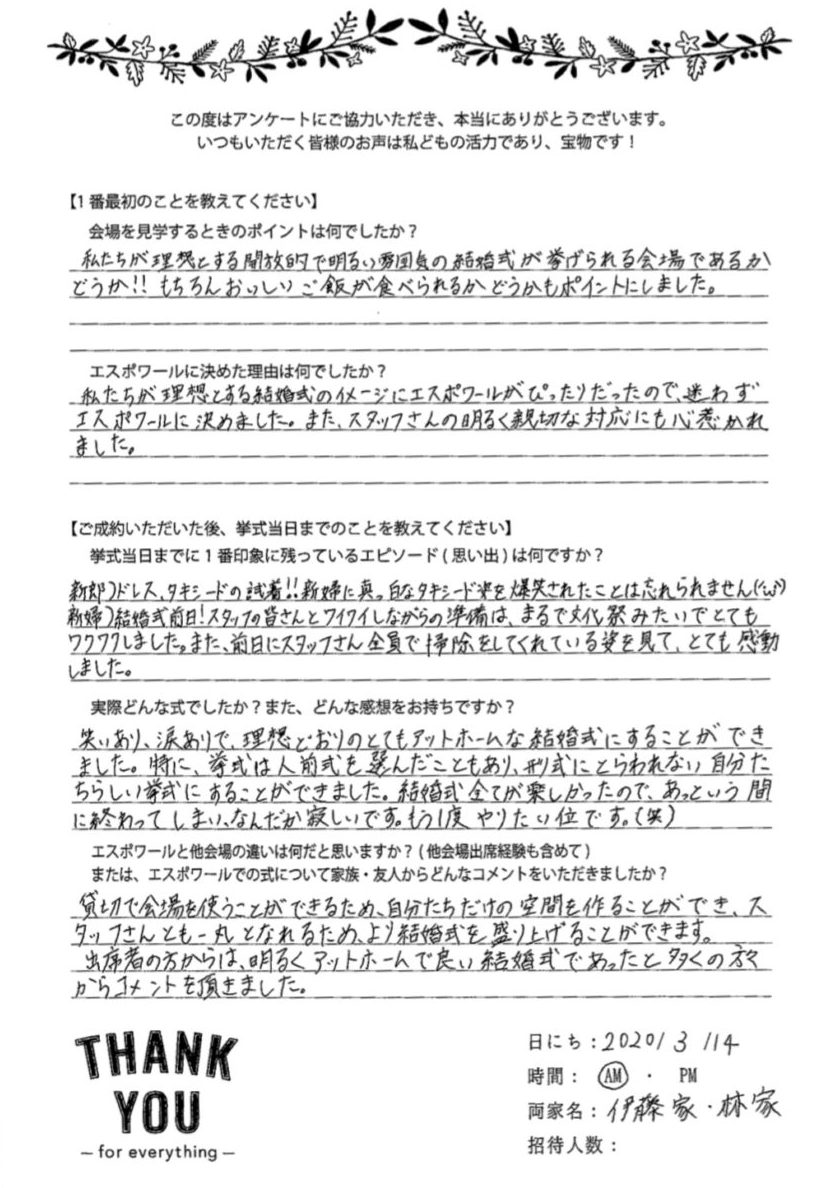 この度はアンケートにご協力いただき、本当にありがとうございます。
いつもいただく皆様のお声は私どもの活力であり、宝物です！
【1番最初のことを教えてください】
会場を見学するときのポイントは何でしたか？
私たちが理想とする開放的で明るい雰囲気の結婚式が挙げられる会場であるか
どうか!! もちろんおいしいご飯が食べられるかどうかもポイントにしました。
エスポワールに決めた理由は何でしたか？
私たちが理想とする結婚式のイメージにエスポワールがぴったりだったので、迷わず
エスポワールに決めました。また、スタッフさんの明るく親切な対応にも心惹かれ
ました。
【ご成約いただいた後、挙式当日までのことを教えてください】
挙式当日までに1番印象に残っているエピソード(思い出)は何ですか？
新郎)ドレス、タキシードの試着!!新婦に真っ白なタキシード姿を爆笑されたことは忘れられません
新婦)結婚式前日!スタッフの皆さんとワイワイしながらの準備は、まるで文化祭みたいでとても
ワクワクしました。また、前日にスタッフさん全員で掃除をしてくれている姿を見て、とても感動
しました。
実際どんな式でしたか？また、どんな感想をお持ちですか？
笑いあり、涙ありで、理想どおりのとてもアットホームな結婚式にすることができ
ました。特に、挙式は人前式を選んだこともあり、形式にとらわれない自分た
ちらしい挙式にすることができました。結婚式全てが楽しかったので、あっという間
に終わってしまい、なんだか寂しいです。もう1度やりたい位です。(笑)
エスポワールと他会場の違いは何だと思いますか？(他会場出席経験も含めて)
または、エスポワールでの式について家族・友人からどんなコメントをいただきましたか？
貸切で会場を使うことができるため、自分たちだけの空間を作ることができ、ス
タッフさんとも一丸となれるため、より結婚式を盛り上げることができます。
出席者の方からは、明るくアットホームで良い結婚式であったと多くの方々
からコメントを頂きました。
THANK
YOU
– for everything –
日にち：2020/3/14
時間： AM ・ PM
両家名：伊藤家・林家
招待人数：